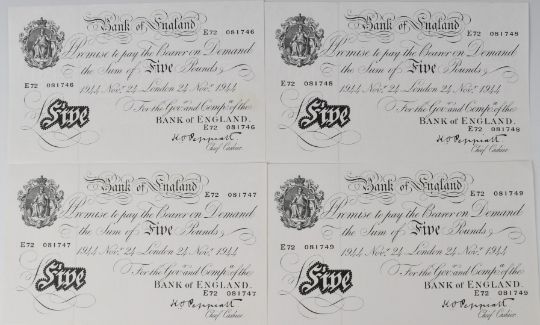 Bank of England
E72 081746
Promise to pay the Bearer on Demand
the Sum of Five Pounds
E72 081746
1944 Novr. 24 London 24 Novr. 1944
For the Govr. and Compa. of the
BANK OF ENGLAND.
E72 081746
Five
K O Peppiatt
Chief Cashier
Bank of England
E72 081748
Promise to pay the Bearer on Demand
the Sum of Five Pounds
E72 081748
1944 Novr. 24 London 24 Novr. 1944
For the Govr. and Compa. of the
BANK OF ENGLAND.
E72 081748
Five
K O Peppiatt
Chief Cashier
Bank of England
E72 081747
Promise to pay the Bearer on Demand
the Sum of Five Pounds
E72 081747
1944 Novr. 24 London 24 Novr. 1944
For the Govr. and Compa. of the
BANK OF ENGLAND.
E72 081747
Five
K O Peppiatt
Chief Cashier
Bank of England
E72 081749
Promise to pay the Bearer on Demand
the Sum of Five Pounds
E72 081749
1944 Novr. 24 London 24 Novr. 1944
For the Govr. and Compa. of the
BANK OF ENGLAND.
E72 081749
Five
K O Peppiatt
Chief Cashier